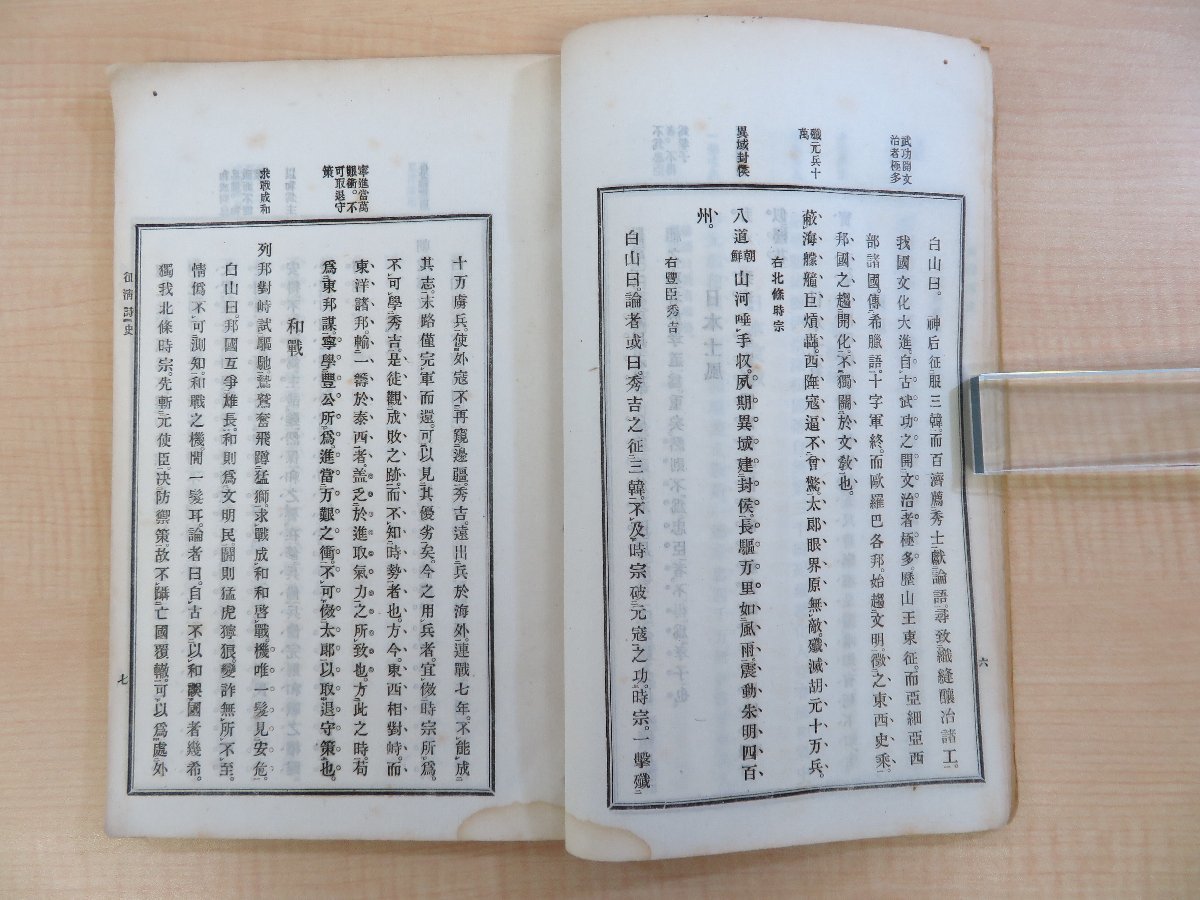 武功開文
治者極多
殲元兵十
萬
異域封侯
白山曰。神后征服三韓。而百濟薦秀士獻論語。尋致織縫釀冶諸工。
我國文化大進。自古武功之開文治者極多。歷山王東征。而亞細亞西
部諸國。傳希臘語。十字軍終。而歐羅巴各邦。始趨文明。徵之東西史乘。
邦國之趨開化。不獨關於文教也。
蔽海艨艟巨熕轟。西陲寇逼不曾驚。太郎眼界原無敵。殲滅胡元十万兵。
右北條時宗
八道朝鮮山河唾手収。夙期異域建封侯。長驅万里如風雨。震動朱明四百
州。
右豐臣秀吉
白山曰。論者或曰。秀吉之征三韓。不及時宗破元寇之功。時宗一擊殲
六
寧進當萬
艱衝。不
可取退守
策
求戰成和
十万虜兵。使外寇不再窺邊疆。秀吉遠出兵於海外。連戰七年。不能成
其志。末路僅完軍而還。可以見其優劣矣。今之用兵者。宜倣時宗所爲。
不可學秀吉。是徒觀成敗之跡。而不知時勢者也。方今東西相對峙。而
東洋諸邦。輸一籌於泰西者。盖乏於進取氣力之所致也。方此之時。苟
爲東邦謀。寧學豐公所爲。進當万艱之衝。不可倣太郎以取退守策也。
和戰
列邦對峙試驅馳。鷙鵞奮飛蹲猛獅。求戰成和和啓戰。機唯一髮見安危。
白山曰。邦國互爭雄長。和則爲文明民。鬪則猛虎獰狼。變詐無所不至。
情僞不可測知。和戰之機。間一髮耳。論者曰。自古不以和誤國者幾希。
獨我北條時宗。先斬元使臣。決防禦策。故不踵亡國覆轍。可以爲處外
征清詩史
七